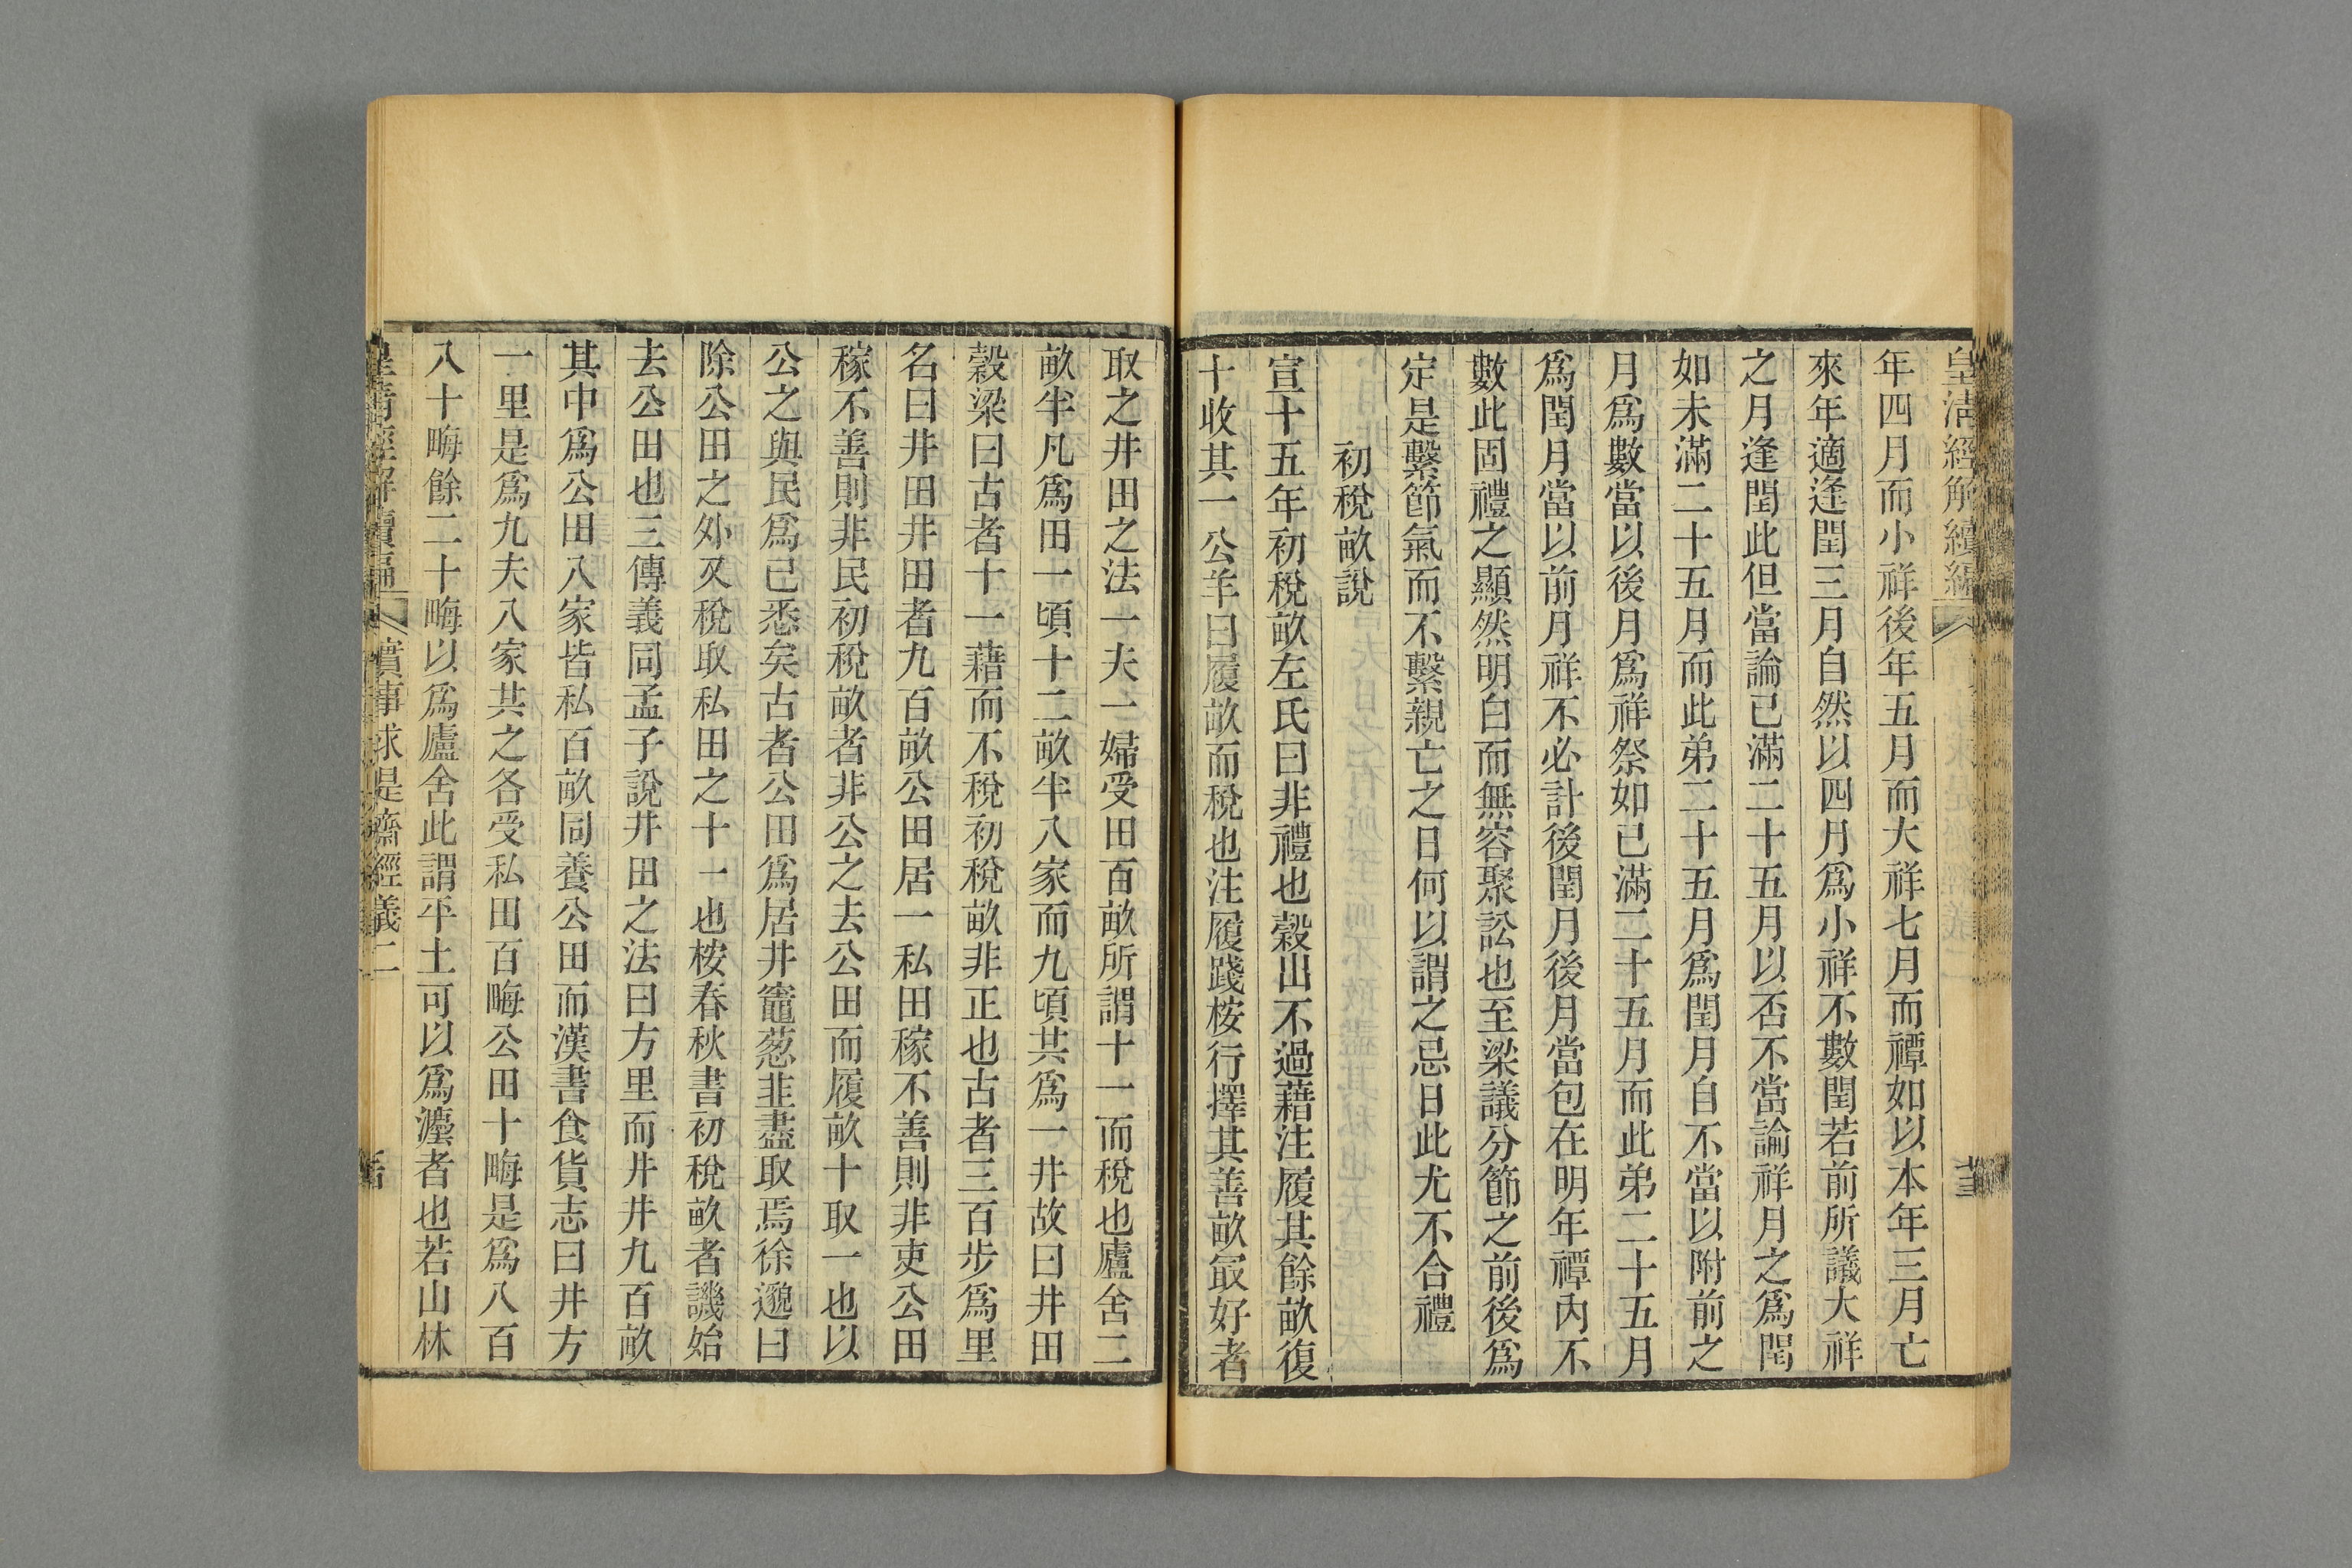 皇清經解續編
年四月而小祥後年五月而大祥七月而禫如以本年三月亡
來年適逢閏三月自然以四月爲小祥不數閏若前所議大祥
之月逢閏此但當論已滿二十五月以否不當論祥月之爲閏
如未滿二十五月而此弟二十五月爲閏月自不當以附前之
月爲數當以後月爲祥祭如已滿二十五月而此弟二十五月
爲閏月當以前月祥不必計後閏月後月當包在明年禫內不
數此固禮之顯然明白而無容聚訟也至梁議分節之前後爲
定是繫節氣而不繫親亡之日何以謂之忌日此尤不合禮
初稅畝說
宣十五年初稅畝左氏曰非禮也穀出不過藉注履其餘畝復
十收其一公羊曰履畝而稅也注履踐桉行擇其善畝冣好者
取之井田之法一夫一婦受田百畝所謂十一而稅也廬舍二
畝半凡爲田一頃十二畝半八家而九頃共爲一井故曰井田
穀梁曰古者十一藉而不稅初稅畝非正也古者三百步爲里
名曰井田井田者九百畝公田居一私田稼不善則非吏公田
稼不善則非民初稅畝者非公之去公田而履畝十取一也以
公之與民爲已悉矣古者公田爲居井竈葱韭盡取焉徐邈曰
除公田之外又稅取私田之十一也桉春秋書初稅畝者譏始
去公田也三傳義同孟子說井田之法曰方里而井井九百畝
其中爲公田八家皆私百畝同養公田而漢書食貨志曰井方
一里是爲九夫八家共之各受私田百畮公田十畮是爲八百
八十畮餘二十畮以爲廬舍此謂平土可以爲灋者也若山林
皇清經解續編 實事求是齋經義二